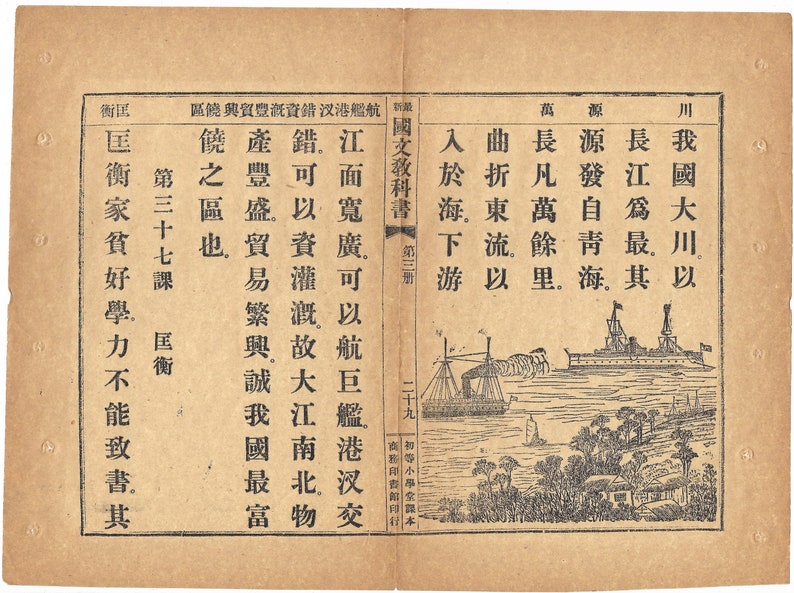 川 源 萬
我國大川。以
長江爲最。其
源發自靑海。
長凡萬餘里。
曲折東流。以
入於海。下游
最新國文敎科書 第三册 二十九
初等小學堂課本
商務印書館印行
航艦港汊錯資漑豐貿興饒區 匡衡
江面寬廣。可以航巨艦。港汊交
錯。可以資灌漑。故大江南北。物
產豐盛。貿易繁興。誠我國最富
饒之區也。
第三十七課 匡衡
匡衡家貧好學。力不能致書。其